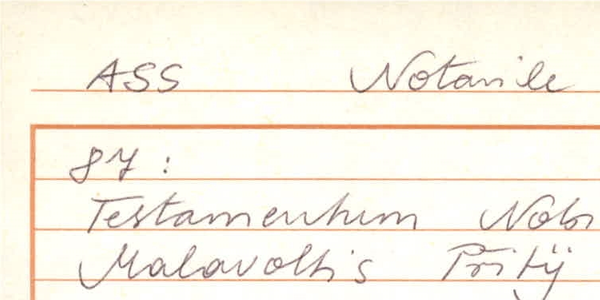 ASS Notarile
87:
Testamentum Nob
Malavoltis